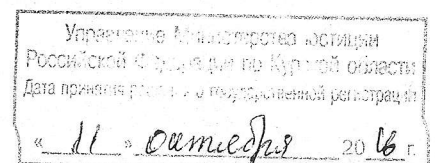 Управление Министерства юстиции
Российской Федерации по Курской области
Дата принятия решения о государственной регистрации
« 11 » октября 20 16 г.